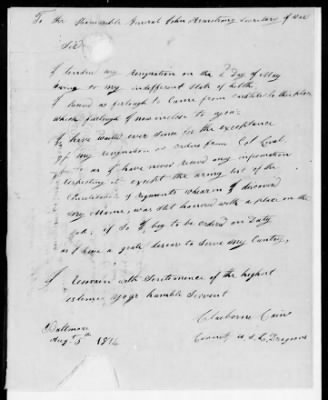 To the Honourable General John Armstrong Secretary of War
Sir
I tendered my Resignation on the 2d Day of May
owing to my indifferent State of helth
I  a furlough to Come from Carlisle to this place
which furlough I now inclose to you
I have waited ever since for the exceptance
of my resignation or orders from Col
as I have never  any information
respecting it except the army list of the
 of Regiments wharin I discover
my Name, was  honored with a place on the
 if so I beg to be orderd on Duty
as I have a grate desier to serve my Cuntry,
I Remain with  of the highest
esteem your humble Servent
Claiborne
Baltimore
Augt 5th 1814
Dragoons